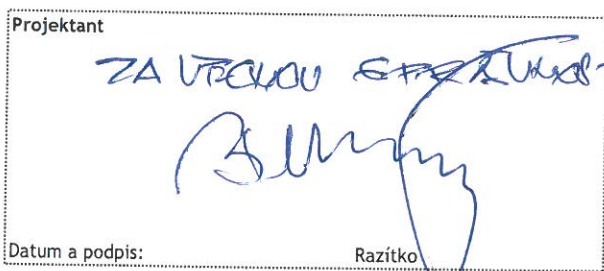 Projektant
ZA VĚCNOU SPRÁVNOST
Datum a podpis:
Razítko